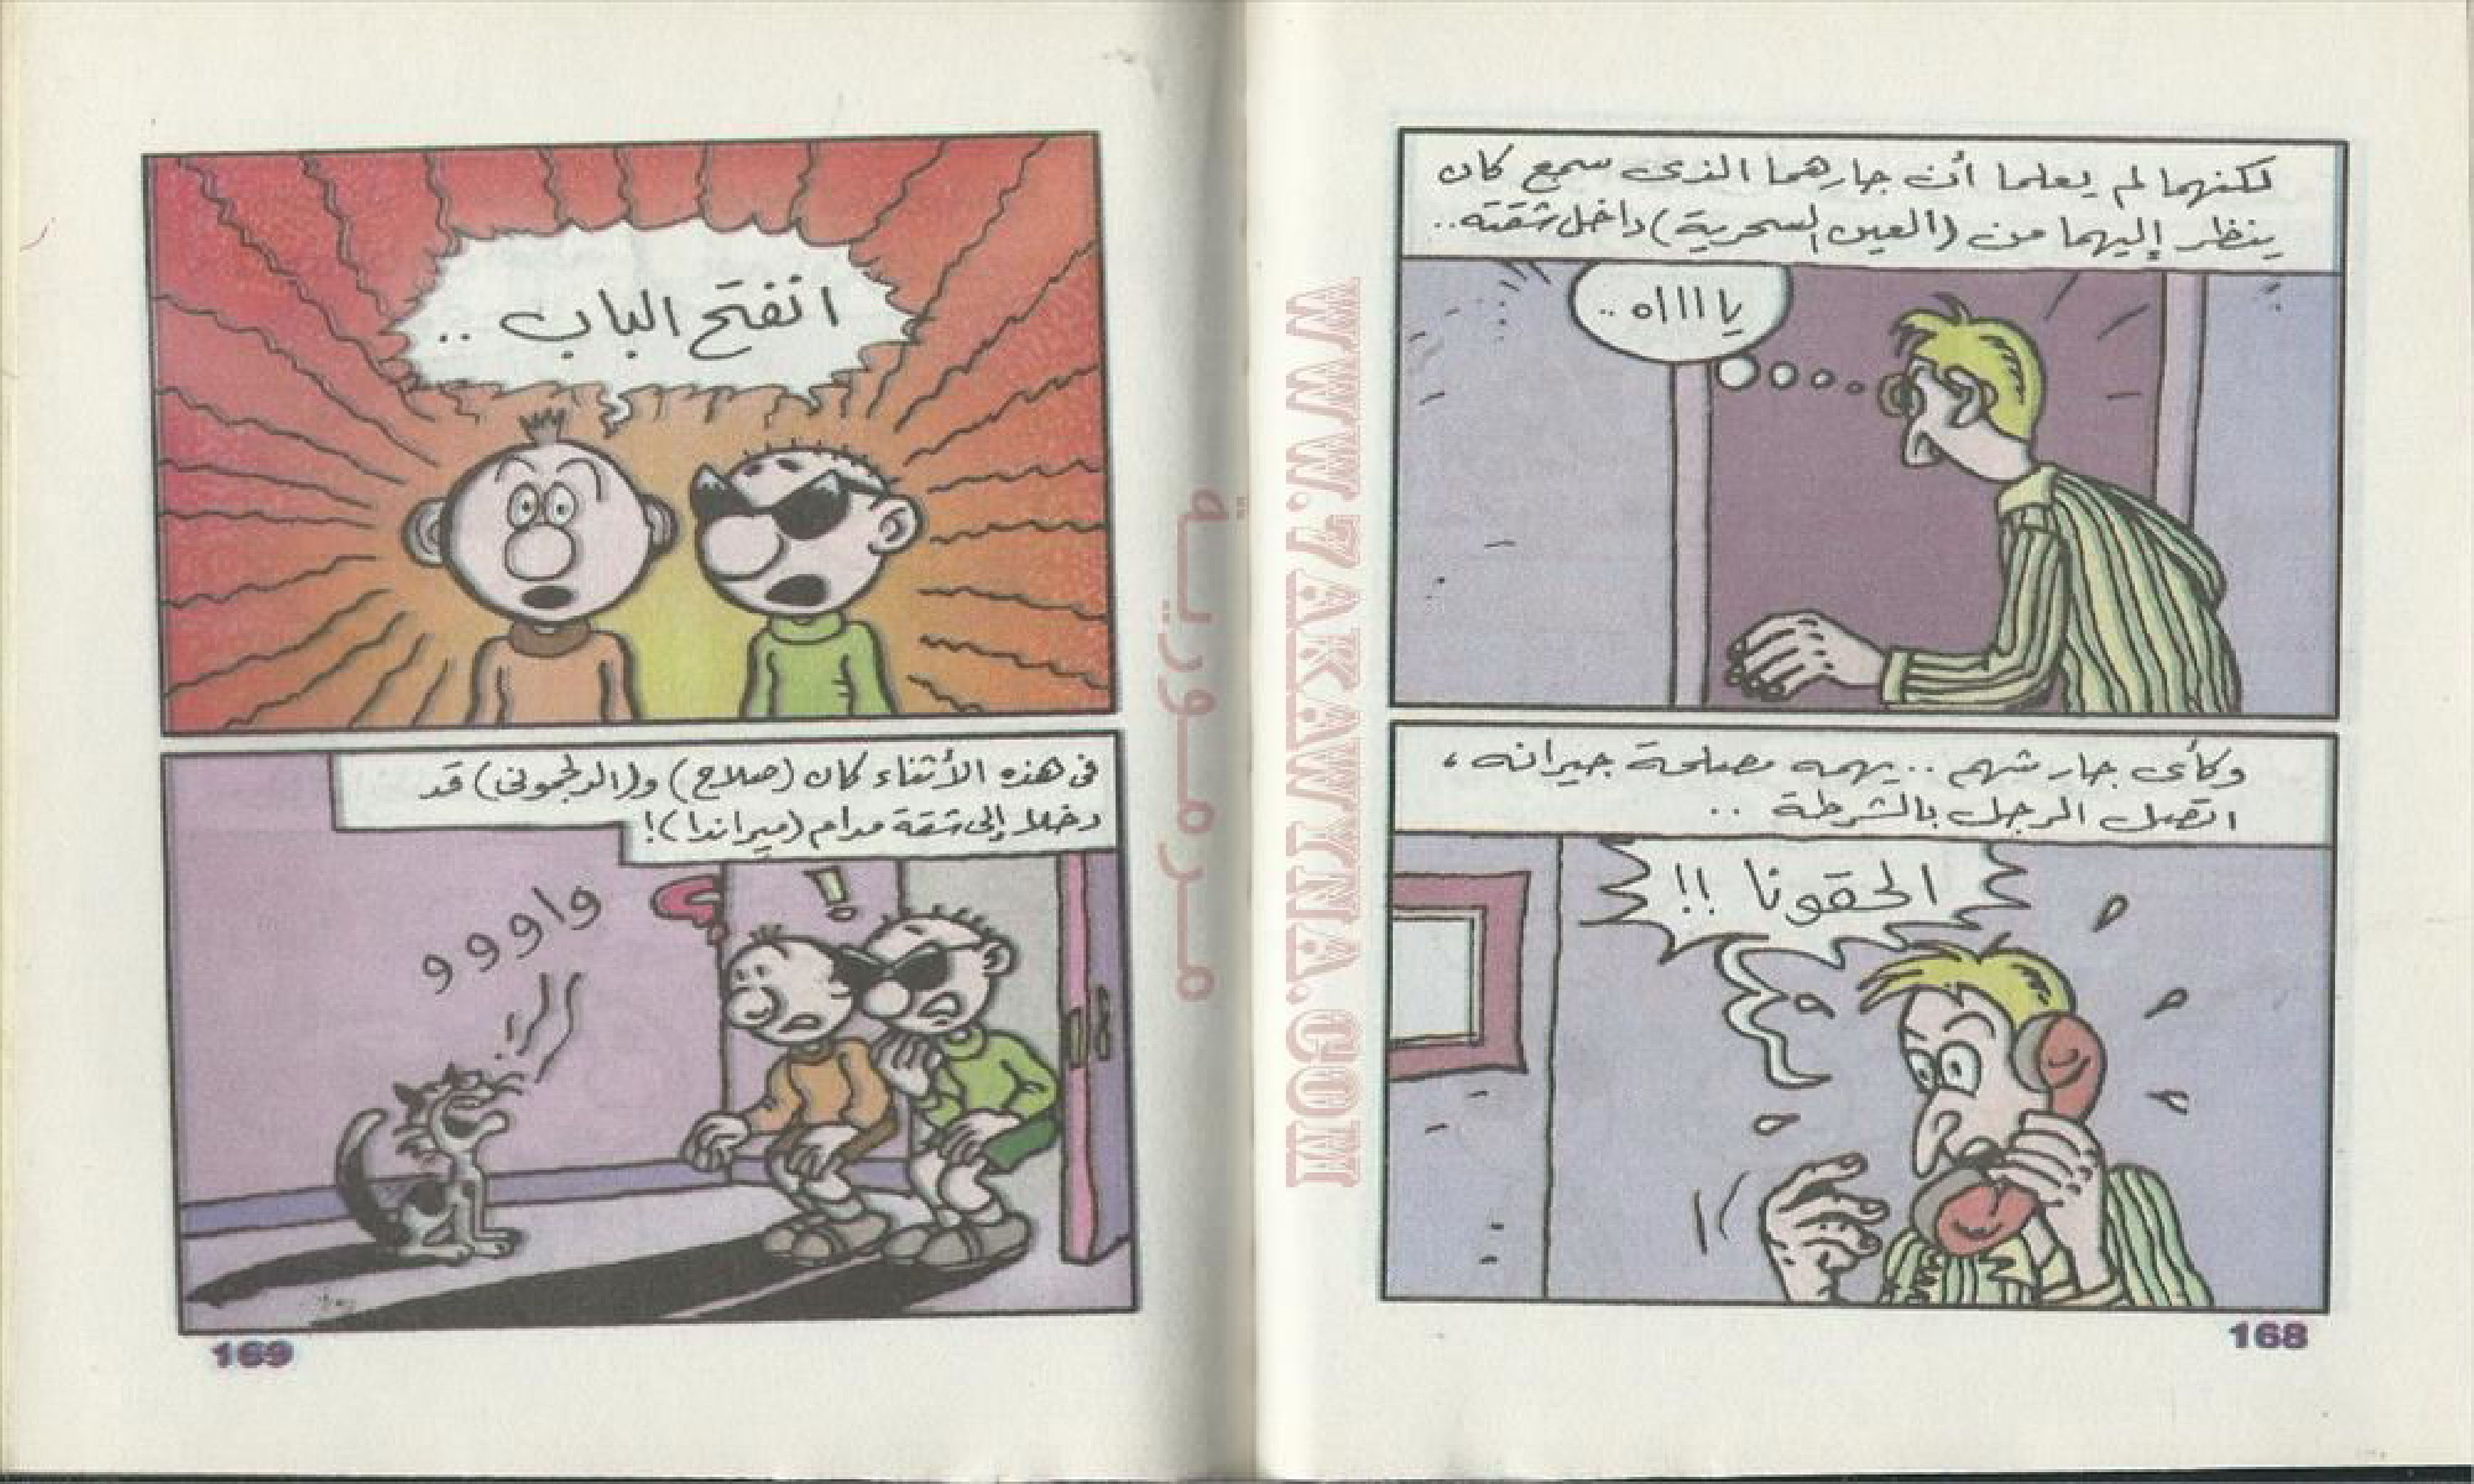 لكنهما لم يعلما أن جارهما الذى سمع كان
ينظر إليهما من (العين السحرية) داخل شقته..
يا ا ا اه ..
وكأى جار شهم .. يهمه مصلحة جيرانه ،
اتصل الرجل بالشرطة ..
الحقونا !!
168
WWW.7AKAWYNA.COM
مرمورية
انفتح الباب ..
فى هذه الأثناء كان (صلاح) و(الدلجمونى) قد
دخلا إلى شقة مدام (ميراندا)!
؟
!
واووو
169